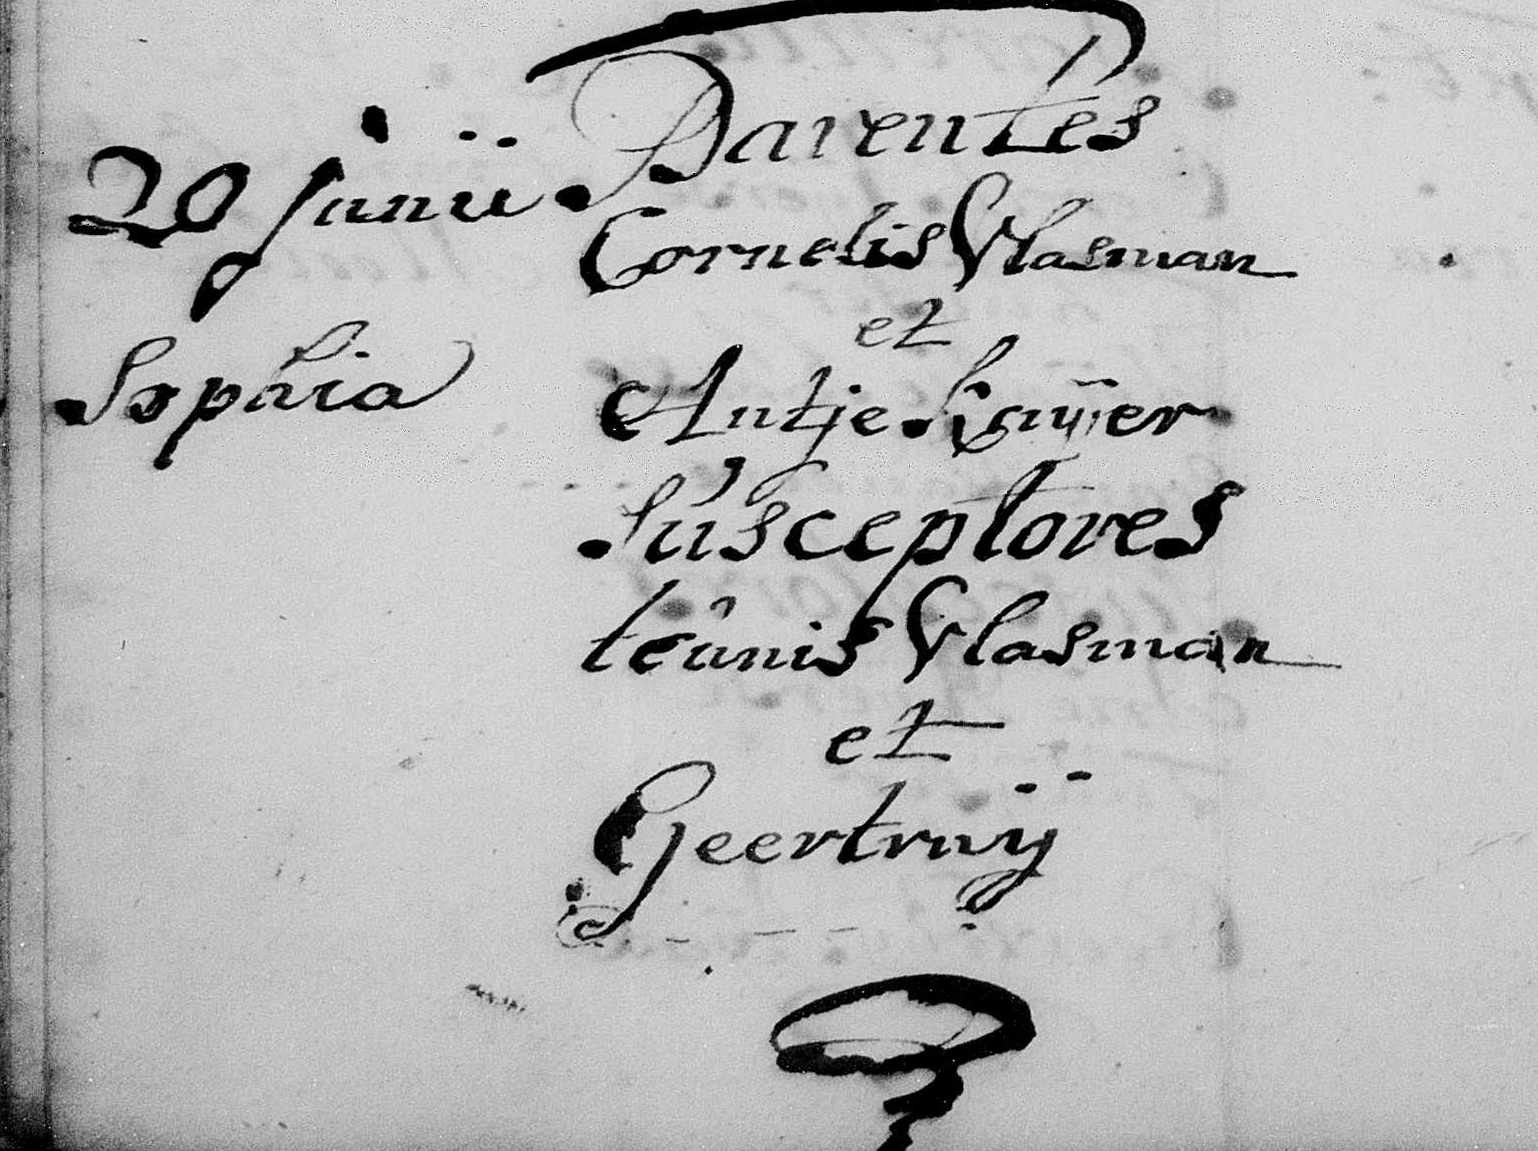 20 Junii
Sophia
Parentes
Cornelis Vlasman
et
Antje
Susceptores
teunis Vlasman
et
Geertruij